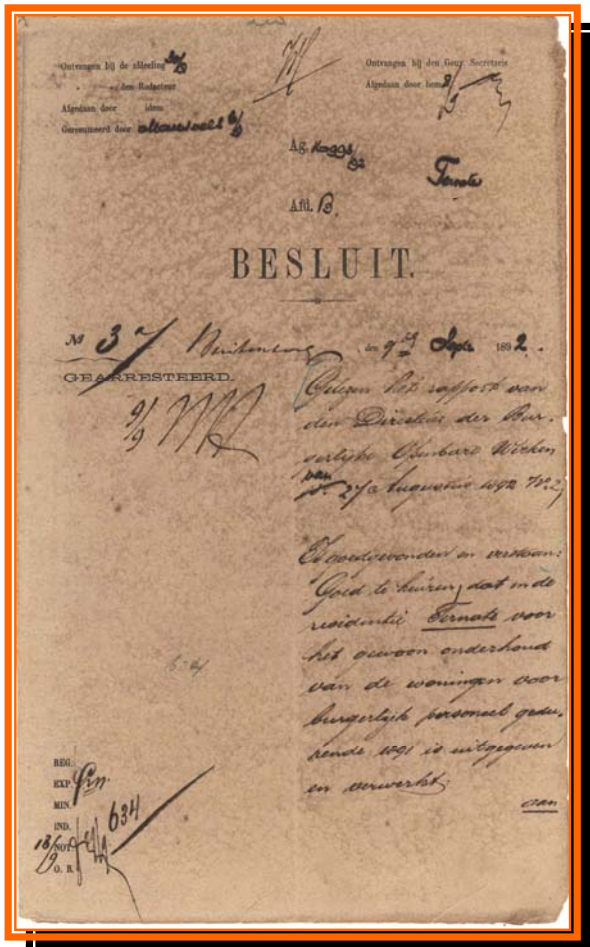 Ontvangen bij de afdeeling 30/8
den Redacteur
Afgedaan door idem
Geresumeerd door
Ontvangen bij den Gouv. Secretaris
Afgedaan door hem 8/9
Ag.
Ternate
Afd. B.
BESLUIT.
No 37 Buitenzorg, den 9de Septr 1892.
GEARRESTEERD.
9/9
Gelezen het rapport van
den Directeur der Bur-
gerlijke Openbare Werken
van 27 Augustus 1892 No.
Is goedgevonden en verstaan:
Goed te keuren, dat in de
residentie Ternate voor
het gewoon onderhoud
van de woningen voor
burgerlijk personeel gedu-
rende 1891 is uitgegeven
en verwerkt
aan
REG.
EXP.
MIN.
IND.
NOT.
O. B.
634